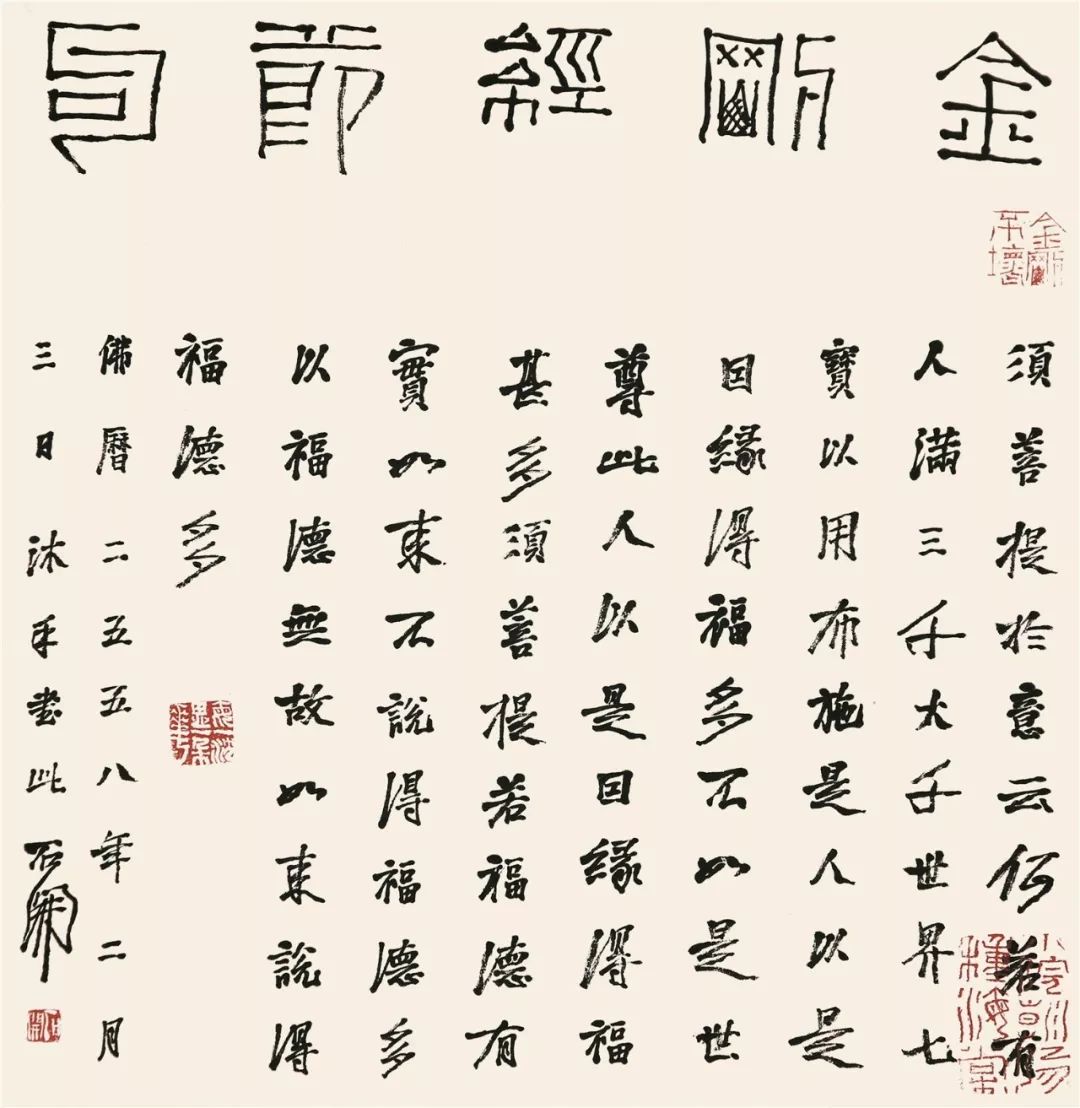 金剛經節
金剛不壞
須菩提於意云何若有
人滿三千大千世界七
寶以用布施是人以是
囙緣得福多不如是世
尊此人以是囙緣得福
甚多須菩提若福德有
實如來不說得福德多
以福德無故如來說得
福德多
佛曆二五五八年二月
三日沐手書此石開
石開